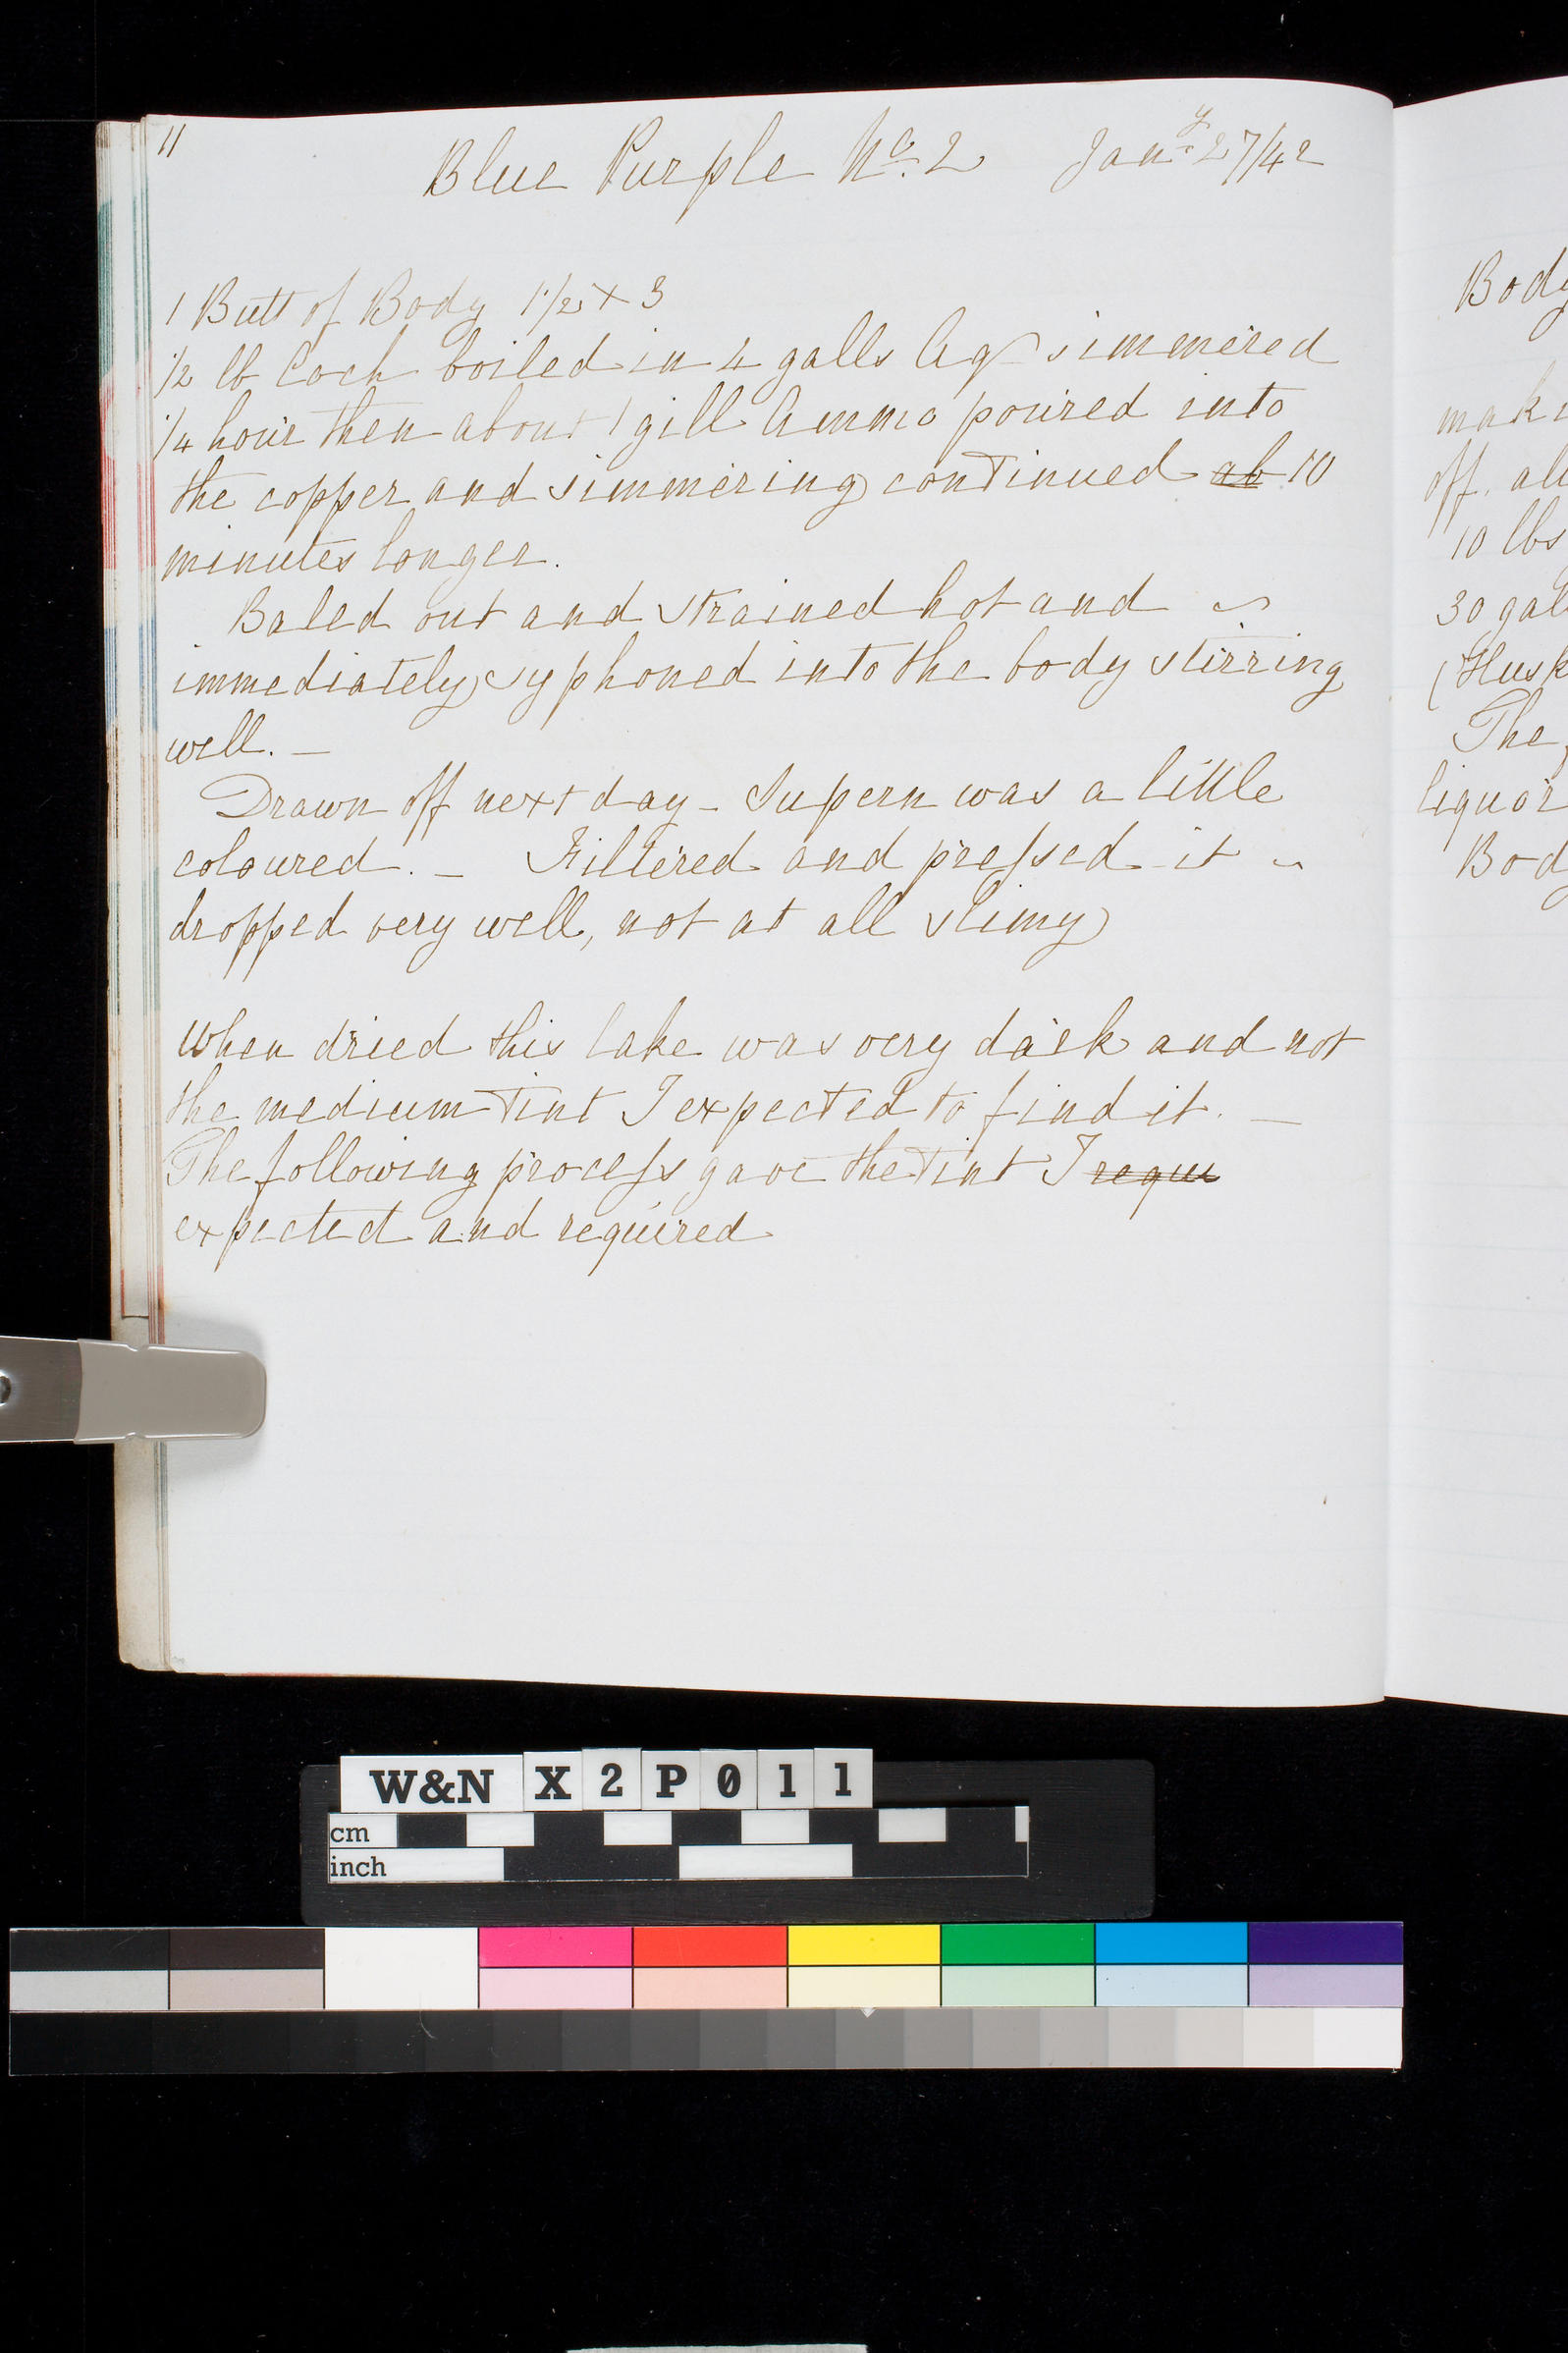 11
Blue Purple No. 2 Jany 27/42
1 Butt of Body 1 1/2 x 3
1/2 lb Coch boiled in 4 galls Aq simmered
1/4 hour then about 1 gill Ammo poured into
the copper and simmering continued ab 10
minutes longer.
Baled out and strained hot and
immediately syphoned into the body stirring
well. —
Drawn off next day - Supern was a little
coloured. — Filtered and pressed it ~
dropped very well, not at all slimy
When dried this lake was very dark and not
the medium tint I expected to find it. —
The following process gave the tint I requi
expected and required
Body
mak
off. all
10 lbs
30 gal
(Husk
The
liquor
Bod
W&N X2P011
cm
inch